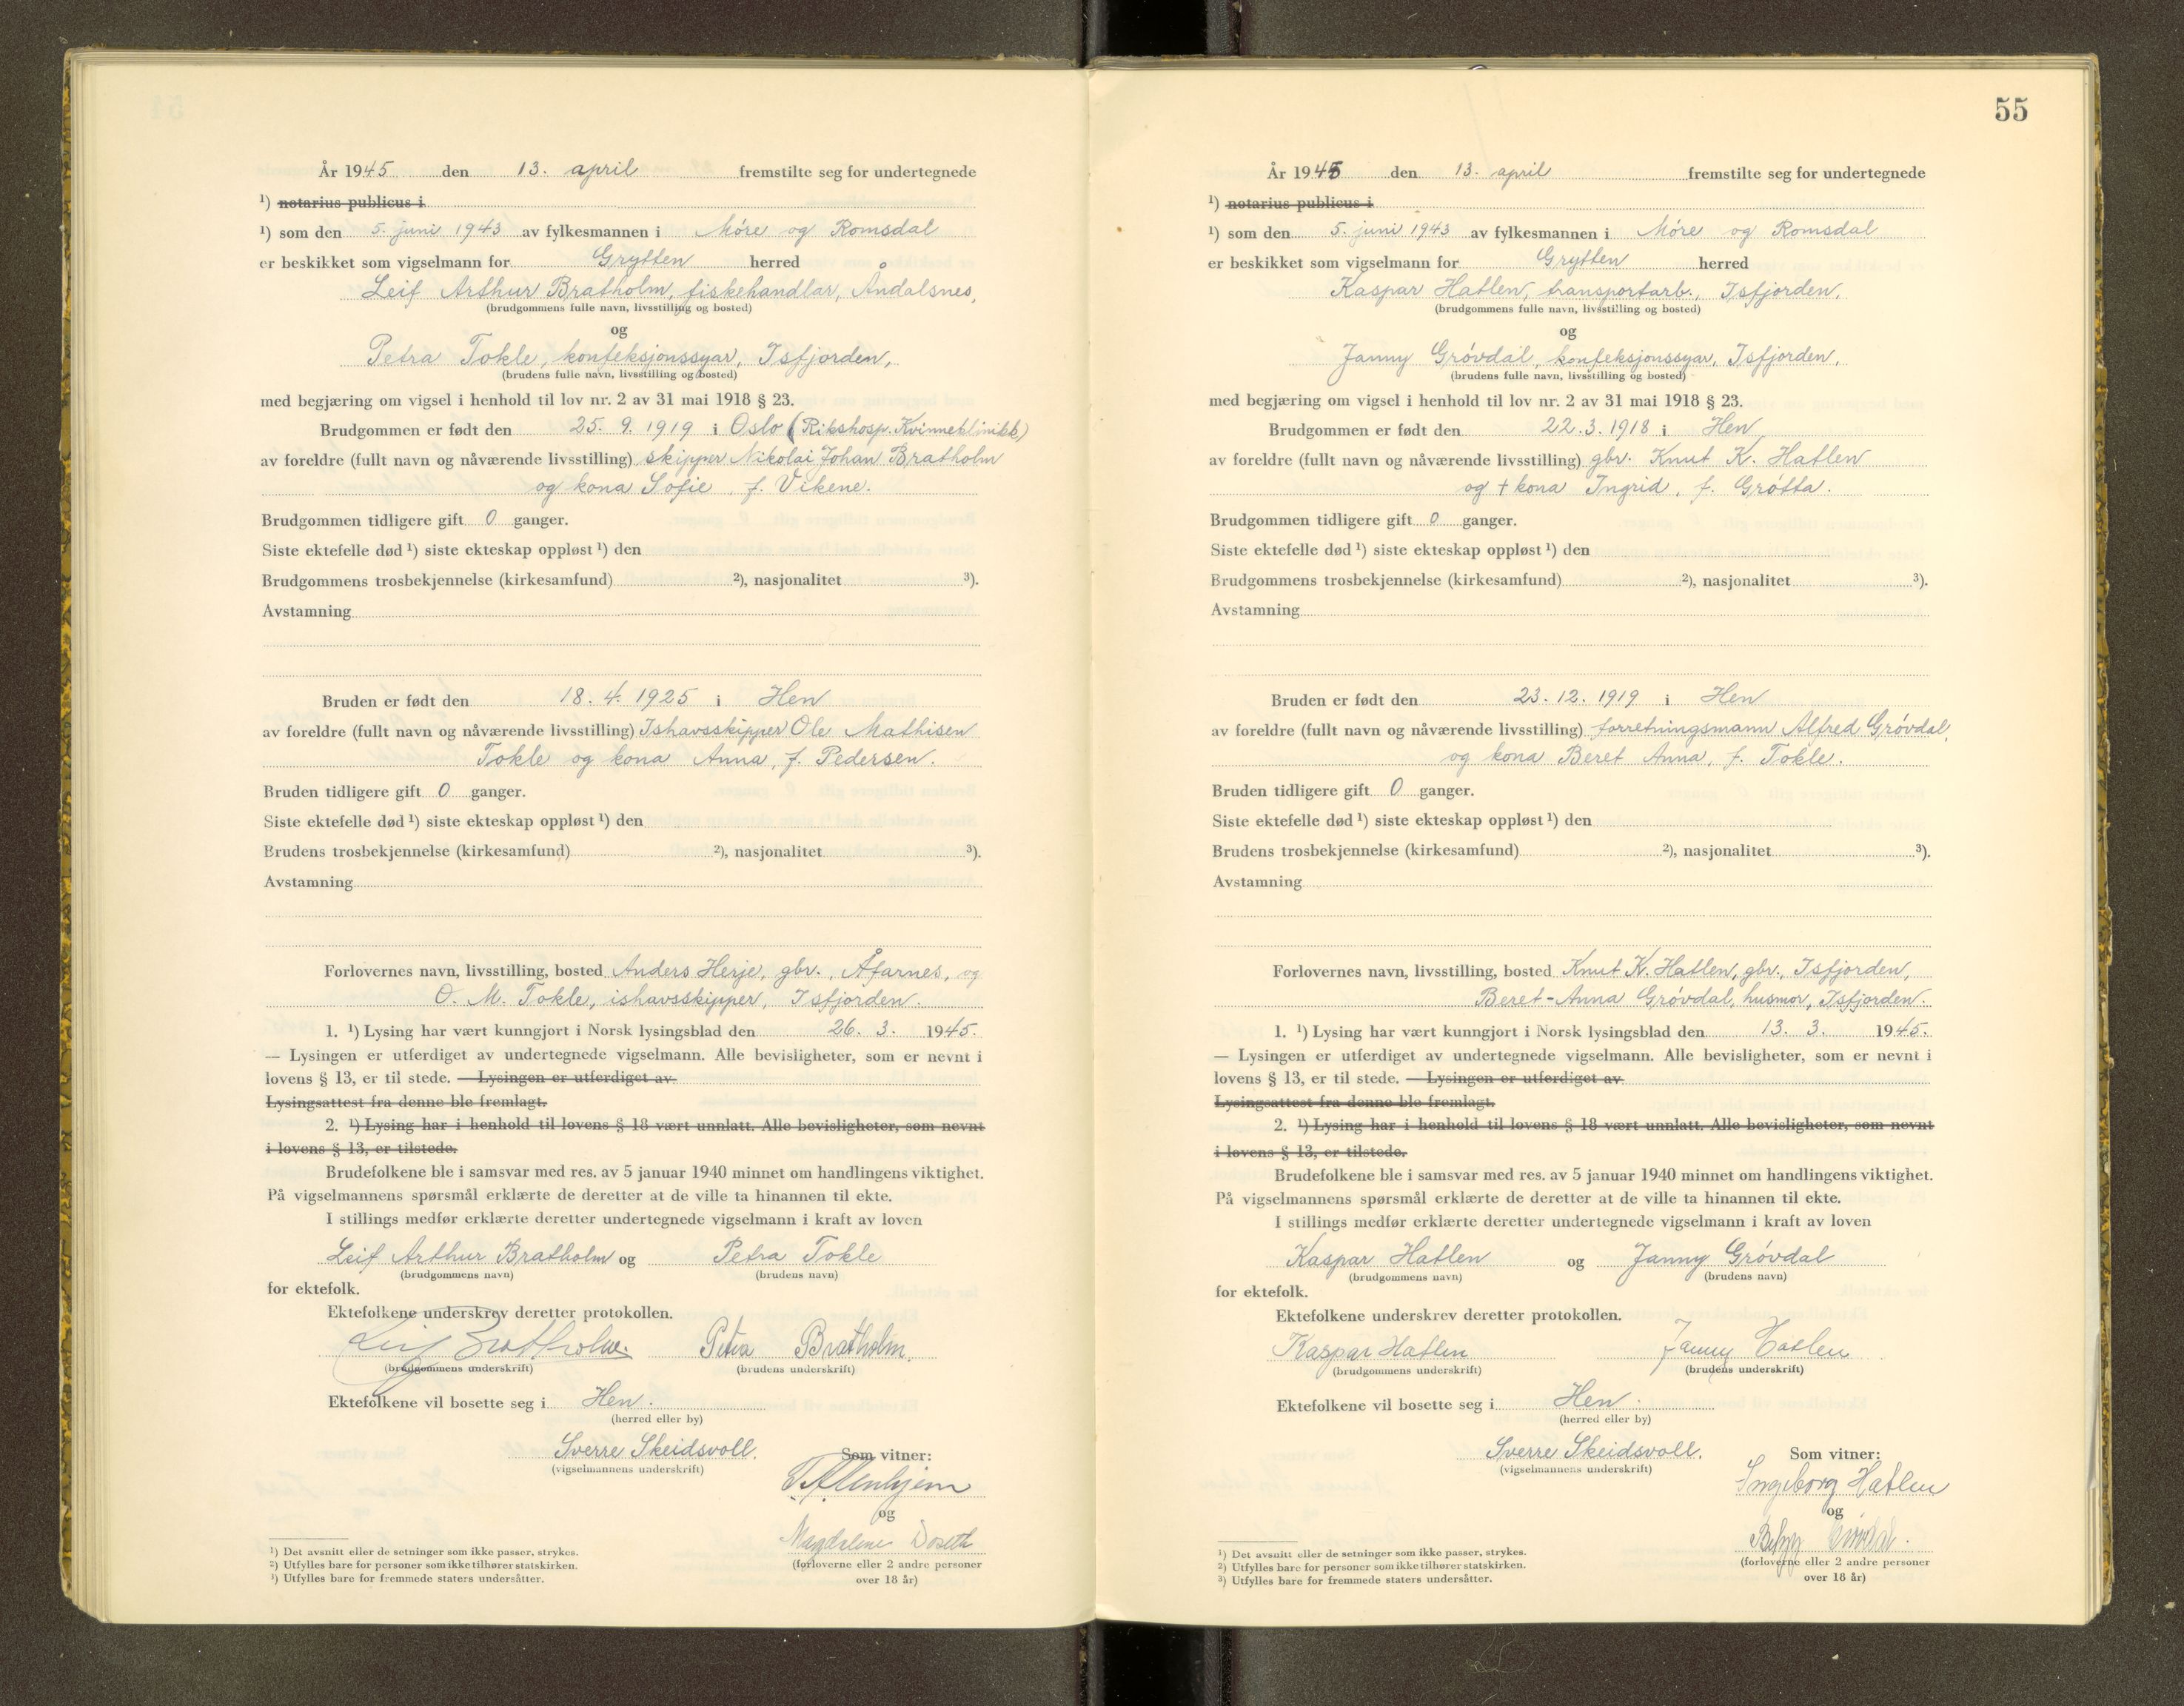 År 1945 den 13. april fremstilte seg for undertegnede
¹) notarius publicus i
¹) som den 5. juni 1943 av fylkesmannen i Møre og Romsdal
er beskikket som vigselmann for Grytten herred
Leif Arthur Bratholm, fiskehandlar, Åndalsnes,
(brudgommens fulle navn, livsstilling og bosted)
og
Petra Tokle, konfeksjonssyar, Isfjorden,
(brudens fulle navn, livsstilling og bosted)
med begjæring om vigsel i henhold til lov nr. 2 av 31 mai 1918 § 23.
Brudgommen er født den 25. 9. 1919 i Oslo (Rikshosp. Kvinneklinikk)
av foreldre (fullt navn og nåværende livsstilling) skipper Nikolai Johan Bratholm
og kona Sofie, f. Vikene.
Brudgommen tidligere gift 0 ganger.
Siste ektefelle død ¹) siste ekteskap oppløst ¹) den
Brudgommens trosbekjennelse (kirkesamfund) ²), nasjonalitet ³).
Avstamning
Bruden er født den 18. 4. 1925 i Hen
av foreldre (fullt navn og nåværende livsstilling) Ishavsskipper Ole Mathisen
Tokle og kona Anna, f. Pedersen.
Bruden tidligere gift 0 ganger.
Siste ektefelle død ¹) siste ekteskap oppløst ¹) den
Brudens trosbekjennelse (kirkesamfund) ²), nasjonalitet ³).
Avstamning
Forlovernes navn, livsstilling, bosted Anders Herje, gbr., Åfarnes, og
O. M. Tokle, ishavsskipper, Isfjorden.
1. ¹) Lysing har vært kunngjort i Norsk lysingsblad den 26. 3. 1945.
— Lysingen er utferdiget av undertegnede vigselmann. Alle bevisligheter, som er nevnt i
lovens § 13, er til stede. — Lysingen er utferdiget av
Lysingsattest fra denne ble fremlagt.
2. ¹) Lysing har i henhold til lovens § 18 vært unnlatt. Alle bevisligheter, som nevnt
i lovens § 13, er tilstede.
Brudefolkene ble i samsvar med res. av 5 januar 1940 minnet om handlingens viktighet.
På vigselmannens spørsmål erklærte de deretter at de ville ta hinannen til ekte.
I stillings medfør erklærte deretter undertegnede vigselmann i kraft av loven
Leif Arthur Bratholm og Petra Tokle
(brudgommens navn) (brudens navn)
for ektefolk.
Ektefolkene underskrev deretter protokollen.
Leif Bratholm. Petra Bratholm.
(brudgommens underskrift) (brudens underskrift)
Ektefolkene vil bosette seg i Hen.
(herred eller by)
Sverre Skeidsvoll.
(vigselmannens underskrift)
Som vitner:
og
Magdalene
(forloverne eller 2 andre personer
over 18 år)
¹) Det avsnitt eller de setninger som ikke passer, strykes.
²) Utfylles bare for personer som ikke tilhører statskirken.
³) Utfylles bare for fremmede staters undersåtter.
55
År 1945 den 13. april fremstilte seg for undertegnede
¹) notarius publicus i
¹) som den 5. juni 1943 av fylkesmannen i Møre og Romsdal
er beskikket som vigselmann for Grytten herred
Kaspar Hatlen, transportarb., Isfjorden,
(brudgommens fulle navn, livsstilling og bosted)
og
Janny Grøvdal, konfeksjonssyar, Isfjorden,
(brudens fulle navn, livsstilling og bosted)
med begjæring om vigsel i henhold til lov nr. 2 av 31 mai 1918 § 23.
Brudgommen er født den 22. 3. 1918 i Hen
av foreldre (fullt navn og nåværende livsstilling) gbr. Knut K. Hatlen
og † kona Ingrid, f. Grøtta.
Brudgommen tidligere gift 0 ganger.
Siste ektefelle død ¹) siste ekteskap oppløst ¹) den
Brudgommens trosbekjennelse (kirkesamfund) ²), nasjonalitet ³).
Avstamning
Bruden er født den 23. 12. 1919 i Hen
av foreldre (fullt navn og nåværende livsstilling) forretningsmann Alfred Grøvdal,
og kona Beret Anna, f. Tokle.
Bruden tidligere gift 0 ganger.
Siste ektefelle død ¹) siste ekteskap oppløst ¹) den
Brudens trosbekjennelse (kirkesamfund) ²), nasjonalitet ³).
Avstamning
Forlovernes navn, livsstilling, bosted Knut K. Hatlen, gbr., Isfjorden,
Beret-Anna Grøvdal, husmor, Isfjorden.
1. ¹) Lysing har vært kunngjort i Norsk lysingsblad den 13. 3. 1945.
— Lysingen er utferdiget av undertegnede vigselmann. Alle bevisligheter, som er nevnt i
lovens § 13, er til stede. — Lysingen er utferdiget av
Lysingsattest fra denne ble fremlagt.
2. ¹) Lysing har i henhold til lovens § 18 vært unnlatt. Alle bevisligheter, som nevnt
i lovens § 13, er tilstede.
Brudefolkene ble i samsvar med res. av 5 januar 1940 minnet om handlingens viktighet.
På vigselmannens spørsmål erklærte de deretter at de ville ta hinannen til ekte.
I stillings medfør erklærte deretter undertegnede vigselmann i kraft av loven
Kaspar Hatlen og Janny Grøvdal
(brudgommens navn) (brudens navn)
for ektefolk.
Ektefolkene underskrev deretter protokollen.
Kaspar Hatlen Janny Hatlen
(brudgommens underskrift) (brudens underskrift)
Ektefolkene vil bosette seg i Hen.
(herred eller by)
Sverre Skeidsvoll.
(vigselmannens underskrift)
Som vitner:
Ingeborg Hatlen
og
Grøvdal.
(forloverne eller 2 andre personer
over 18 år)
¹) Det avsnitt eller de setninger som ikke passer, strykes.
²) Utfylles bare for personer som ikke tilhører statskirken.
³) Utfylles bare for fremmede staters undersåtter.